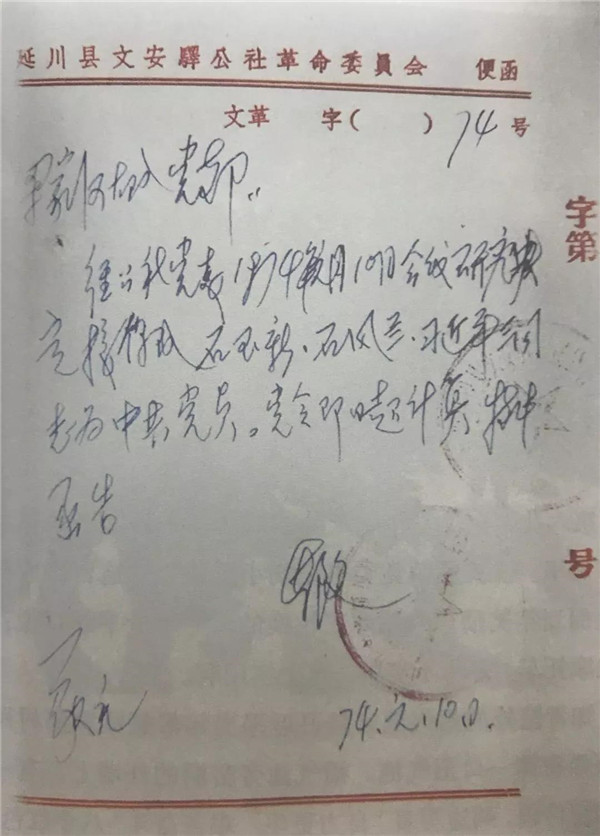 延川县文安驿公社革命委員会 便函
文革 字( ) 74 号
梁家河大队党支部:
经公社党委1974年元月10日会议研究决
定接收 石玉新、石风兰、习近平 同
志为中共党员。党令即日起计算, 特此
函告
74.元.10日.
字第
号